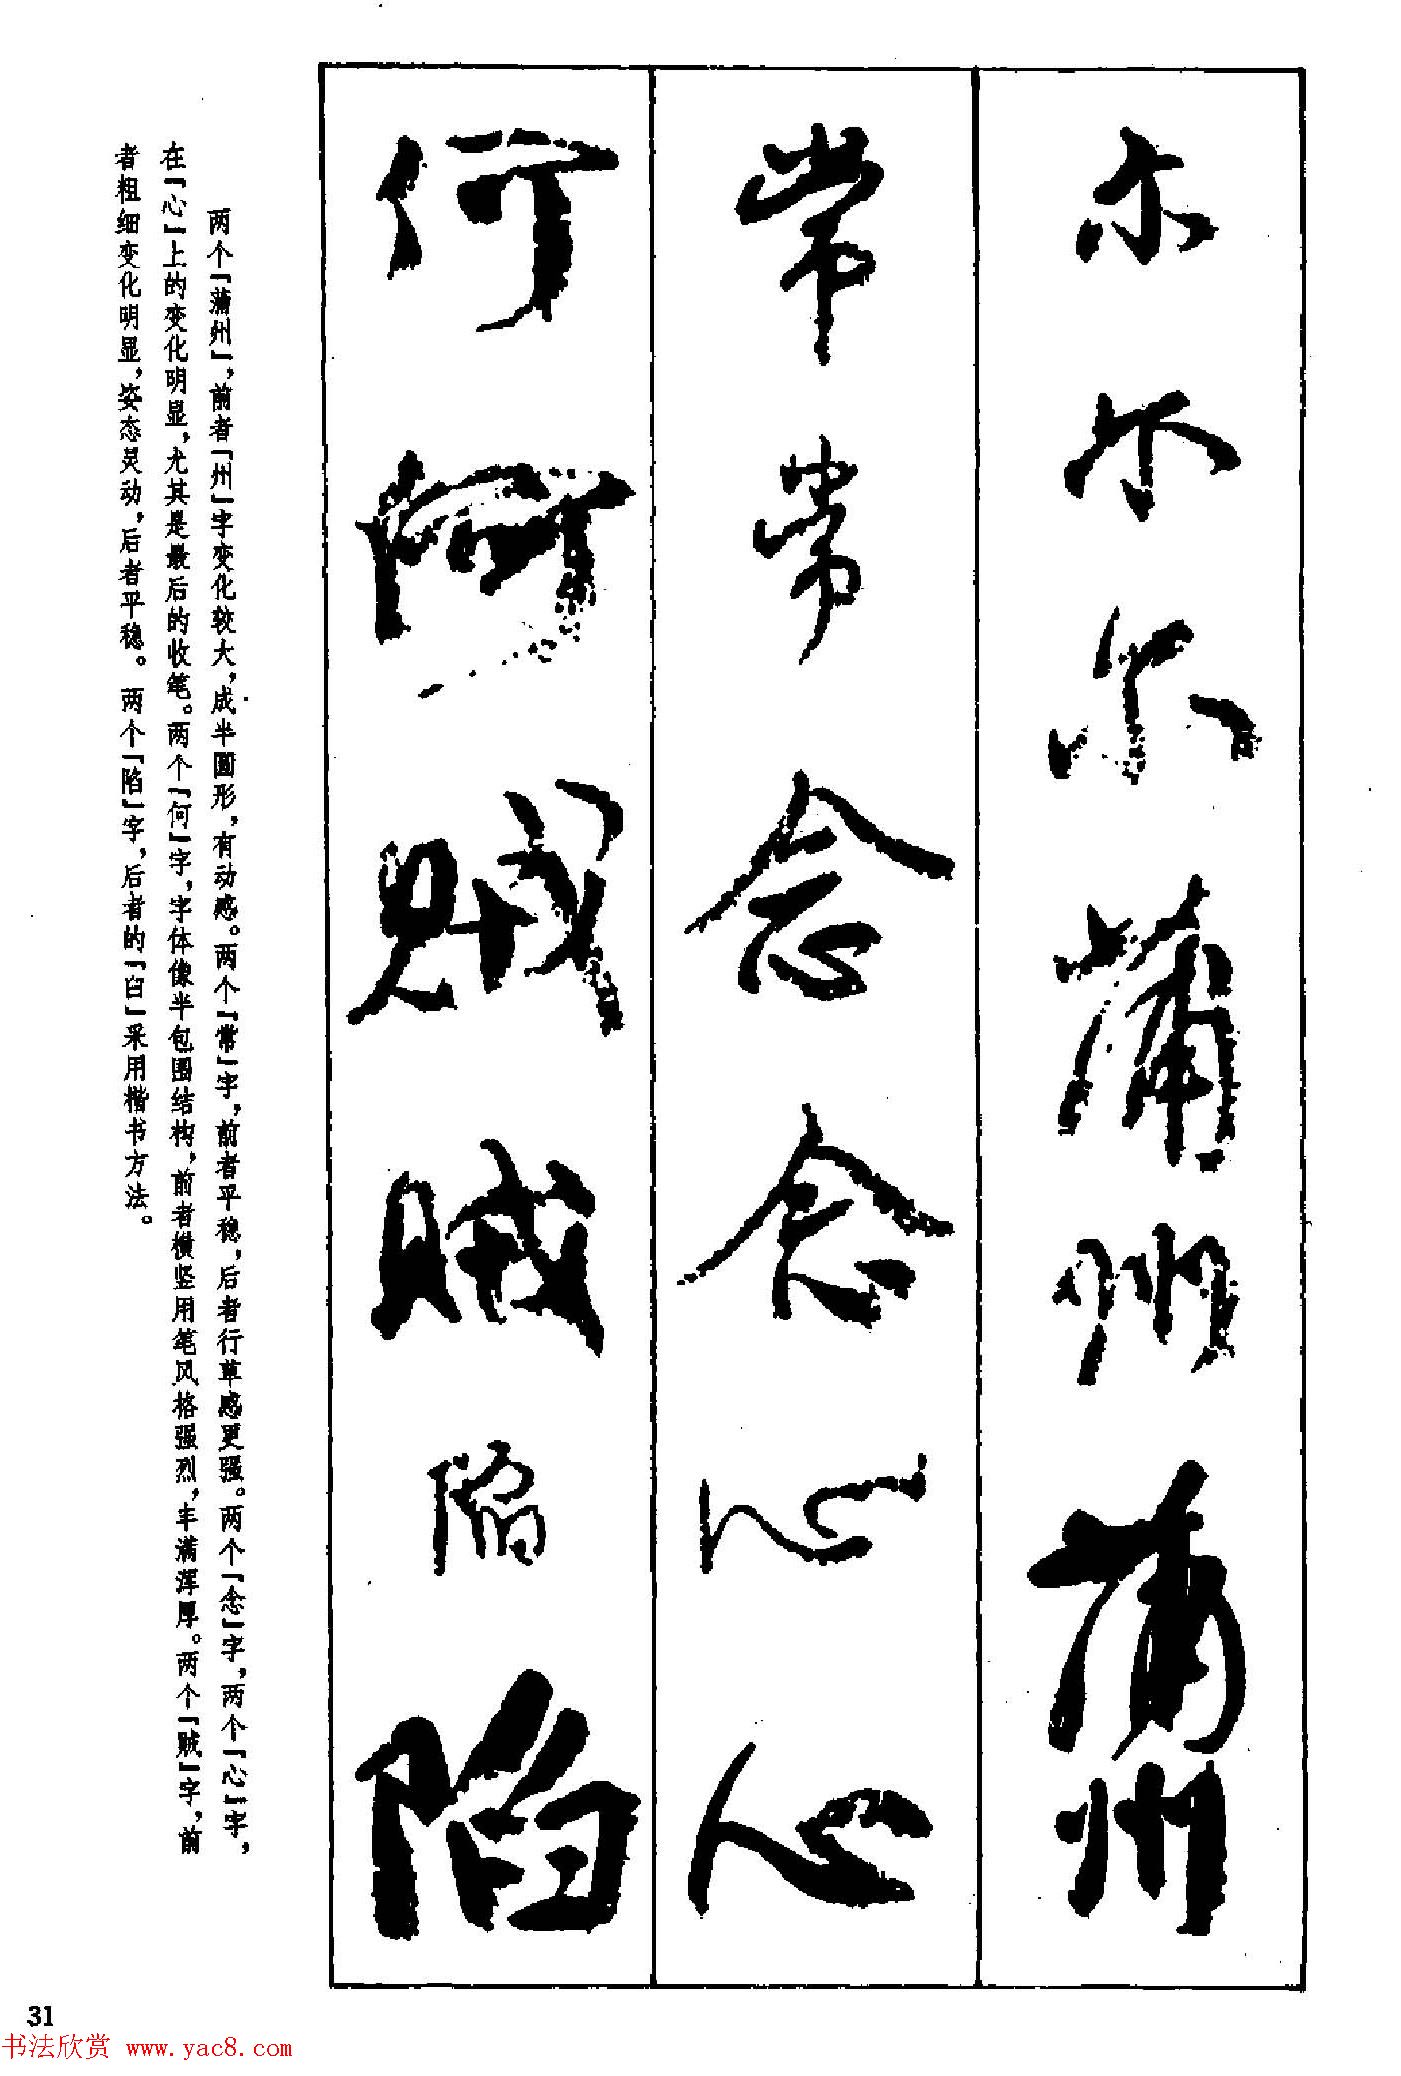 尔尔尔蒲州蒲州
常常念念心心
何何贼贼陷陷
两个「蒲州」，前者「州」字变化较大，成半圆形，有动感。两个「常」字，前者平稳，后者行草感更强。两个「念」字，两个「心」字，
在「心」上的变化明显，尤其是最后的收笔。两个「何」字，字体像半包围结构，前者横竖用笔风格强烈，丰满浑厚。两个「贼」字，前
者粗细变化明显，姿态灵动，后者平稳。两个「陷」字，后者的「臼」采用楷书方法。
31
书法欣赏 www.yac8.com